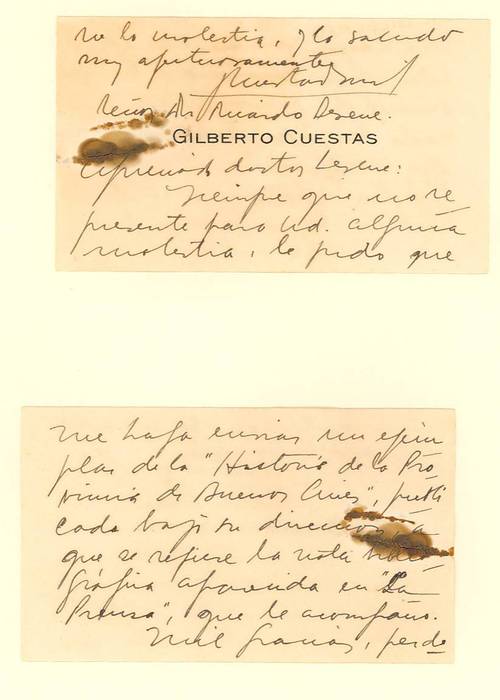 ne la molestia, y lo saludo
muy afectuosamente
Señor Dr. Ricardo Levene.
GILBERTO CUESTAS
Apreciado doctor Levene:
Siempre que no re
presente para Ud. alguna
molestia, le pido que
me haga enviar un ejem
plar de la "Historia de la Pro
vincia de Buenos Aires", publi
cada bajo su dirección, a
que se refiere la nota biblio
gráfica aparecida en "La
Prensa", que le acompaño.
Mil gracias, perdo